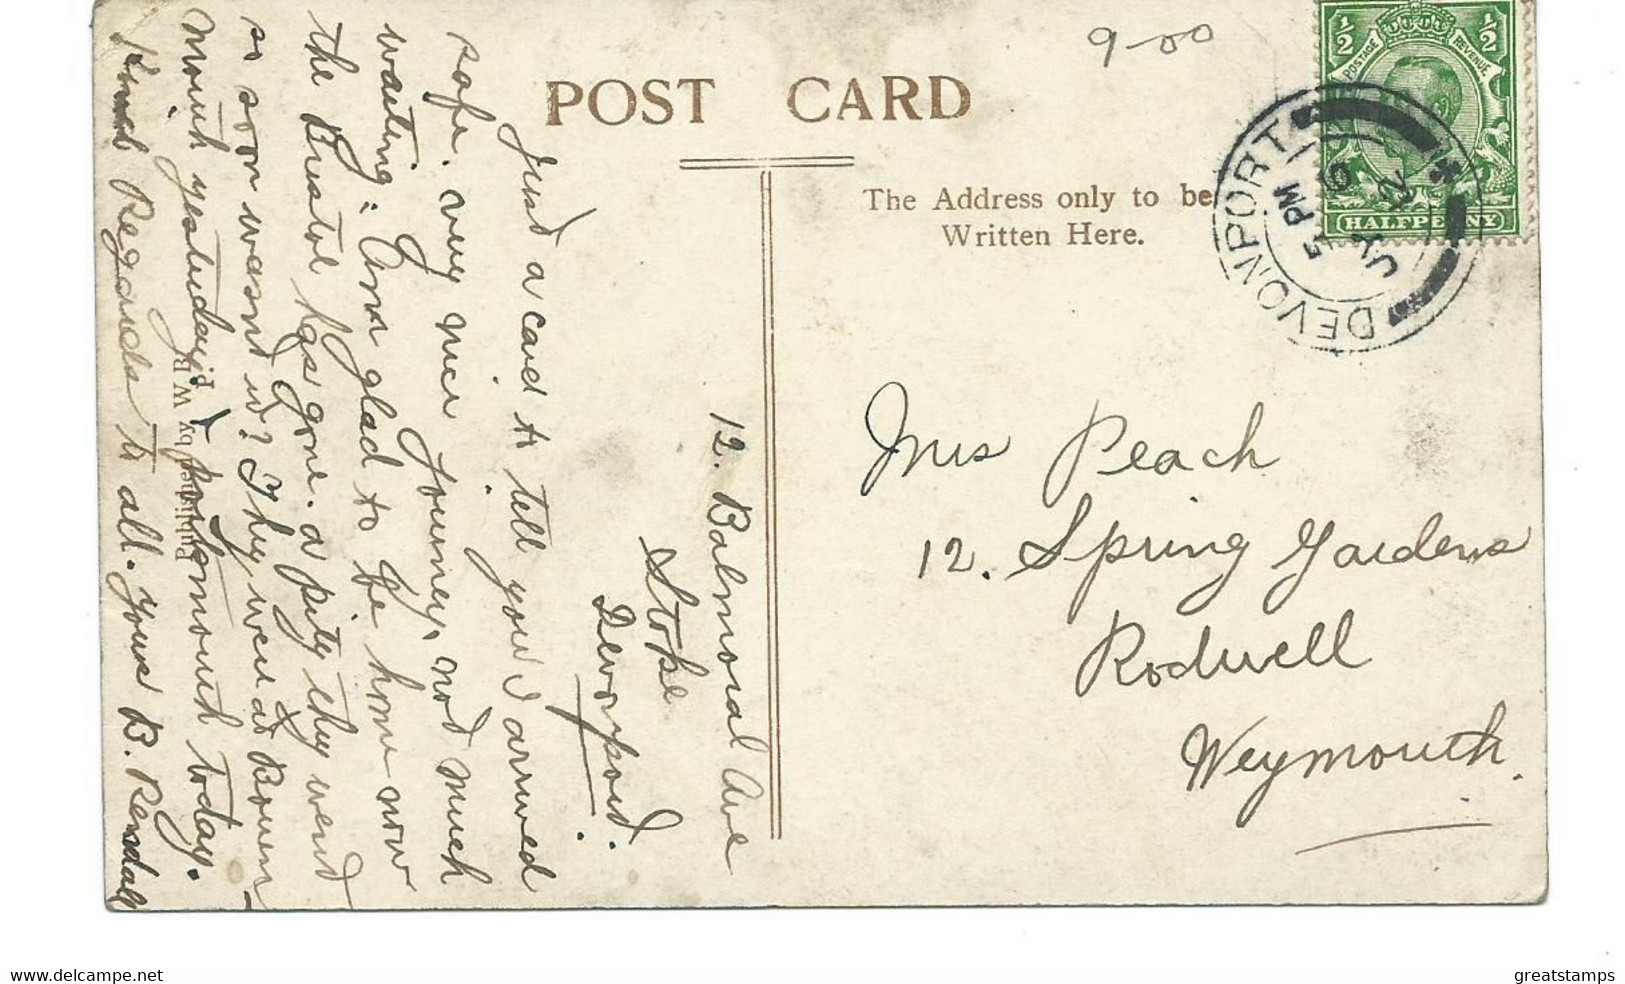 POST CARD
9-00
The Address only to be
Written Here.
½ ½
POSTAGE REVENUE
HALFPENNY
DEVONPORT
5 PM
JY 12
Mrs Peach
12. Spring Gardens
Rodwell
Weymouth.
12. Balmoral Ave
Stoke
Devonport.
Just a card to tell you I arrived
safe. very nice journey, not much
waiting: Am glad to be home now
the Bristol has gone. a pity they went
so soon wasnt it? They were at Bourn-
mouth yesterday, & Portsmouth today.
Kind Regards to all. yours B. Rendall
Published by W R P
www.delcampe.net
greatstamps